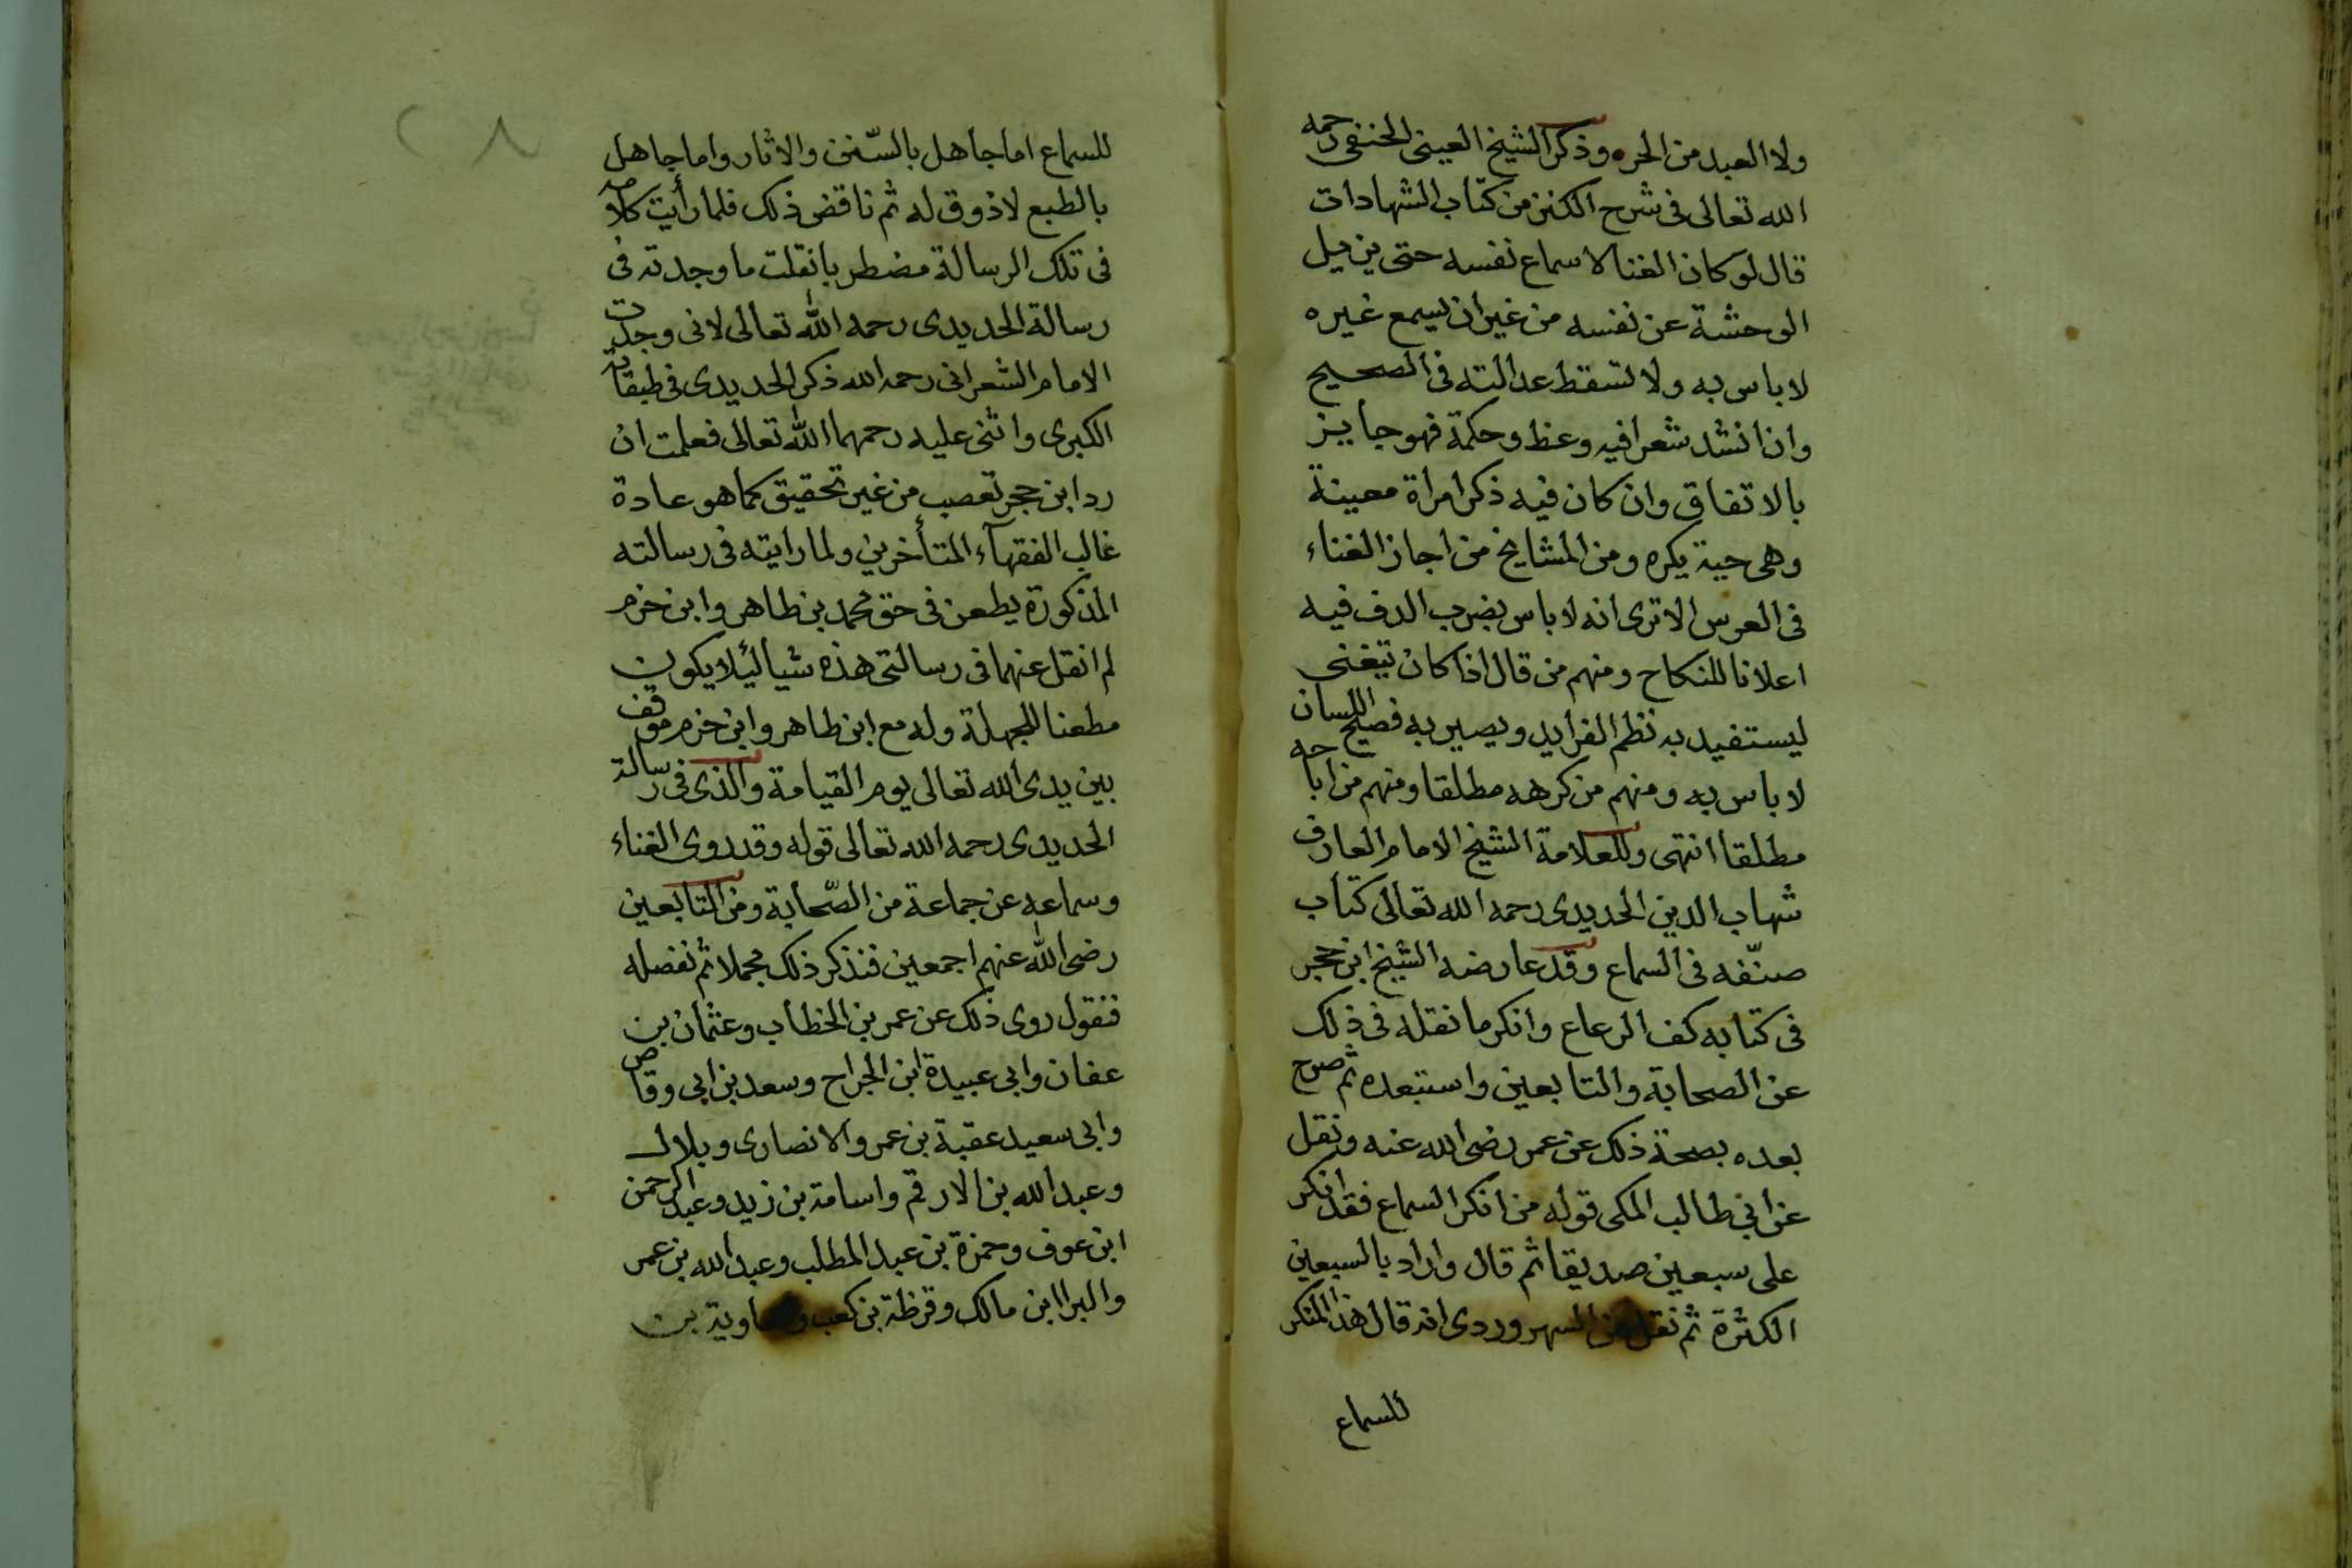 ولا العبد من الحره وذكر الشيخ العينى الحنفى رحمه
الله تعالى فى شرح الكنز من كتاب الشهادات
قال لو كان الغنا لاسماع نفسه حتى يزيل
الوحشة عن نفسه من غير ان يسمع غيره
لا باس به ولا تسقط عدالته فى الصحيح
وان انشد شعرا فيه وعظ وحكمة فهو جايز
بالاتفاق وان كان فيه ذكر امراة معينة
وهى حية يكره ومن المشايخ من اجاز الغناء
فى العرس الا ترى انه لا باس بضرب الدف فيه
اعلانا للنكاح ومنهم من قال اذا كان يتغنى
ليستفيد به نظم الفرايد ويصير به فصيح اللسان
لا باس به ومنهم من كرهه مطلقا ومنهم من اباحه
مطلقا انتهى وللعلامة الشيخ الامام العارف
شهاب الدين الحديدى رحمه الله تعالى كتاب
صنّفه فى السماع وقد عارضه الشيخ ابن حجر
فى كتابه كف الرعاع وانكر ما نقله فى ذلك
عن الصحابة والتابعين واستبعده ثم صرح
بعده بصحة ذلك عن عمر رضى الله عنه ونقل
عن ابى طالب المكى قوله من انكر السماع فقد انكر
على سبعين صديقا ثم قال واراد بالسبعين
الكثرة ثم نقل عن السهروردى انه قال هذا المنكر
للسماع
٢٨
للسماع اما جاهل بالسّنن والاثار واما جاهل
بالطبع لا ذوق له ثم ناقض ذلك فلما رأيت كلامه
فى تلك الرسالة مضطربا نقلت ما وجدته فى
رسالة الحديدى رحمه الله تعالى لانى وجدت
الامام الشعرانى رحمه الله ذكر الحديدى فى طبقاته
الكبرى واثنى عليه رحمهما الله تعالى فعلمت ان
رد ابن حجر تعصب من غير تحقيق كما هو عادة
غالب الفقهآء المتأخرين ولما رايته فى رسالته
المذكورة يطعن فى حق محمد بن طاهر وابن خزم
لم انقل عنهما فى رسالتى هذه شيا ليئلا يكون
مطعنا للجهلة وله مع ابن طاهر وابن خزم موقف
بين يدى الله تعالى يوم القيامة والذى فى رسالة
الحديدى رحمه الله تعالى قوله وقد روى الغناء
وسماعه عن جماعة من الصّحابة ومن التابعين
رضى الله عنهم اجمعين فنذكر ذلك مجملا ثم نفصله
فنقول روى ذلك عن عمر بن الخطاب وعثمان بن
عفان وابى عبيدة ابن الجراح وسعد بن ابى وقاص
وابى سعيد عقبة بن عمرو الانصارى وبلال
وعبد الله بن الارقم واسامة بن زيد وعبد الرحمن
ابن عوف وحمزة بن عبد المطلب وعبد الله بن عمر
والبرا ابن مالك وقرظة بن كعب ومعاوية بن